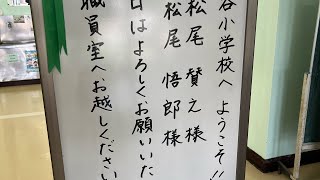 谷小学校へ ようこそ!!
松尾 賛之 様
松尾 悟郎 様
日はよろしくお願いいた
職員室へお越しください